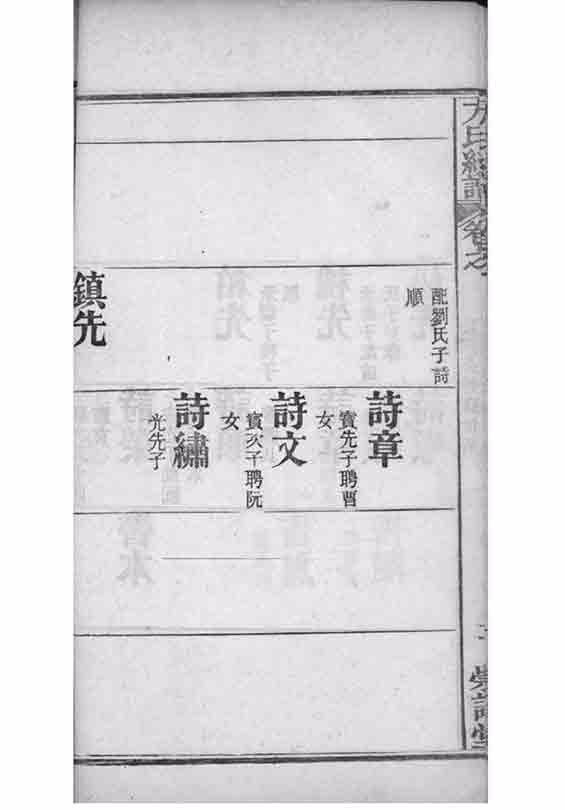 方氏總譜
配劉氏子詩
順
鎮先
詩章
寳先子聘曹
女
詩文
寳次子聘阮
女
詩繡
光先子